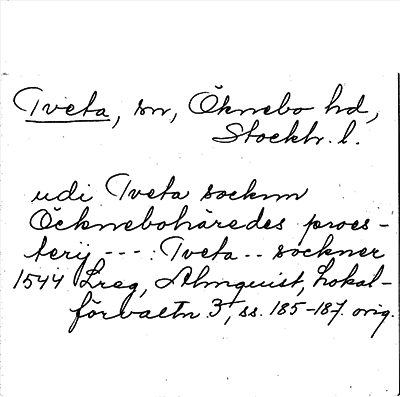 Tveta, sn, Öknebo hd,
Stockh. l.
udi Tveta socknn
Öcknebohäredes proes-
terij --- : Tveta -- sockner
1544 Lreg, Almquist, Lokal-
förvaltn 3, ss. 185-187. orig.